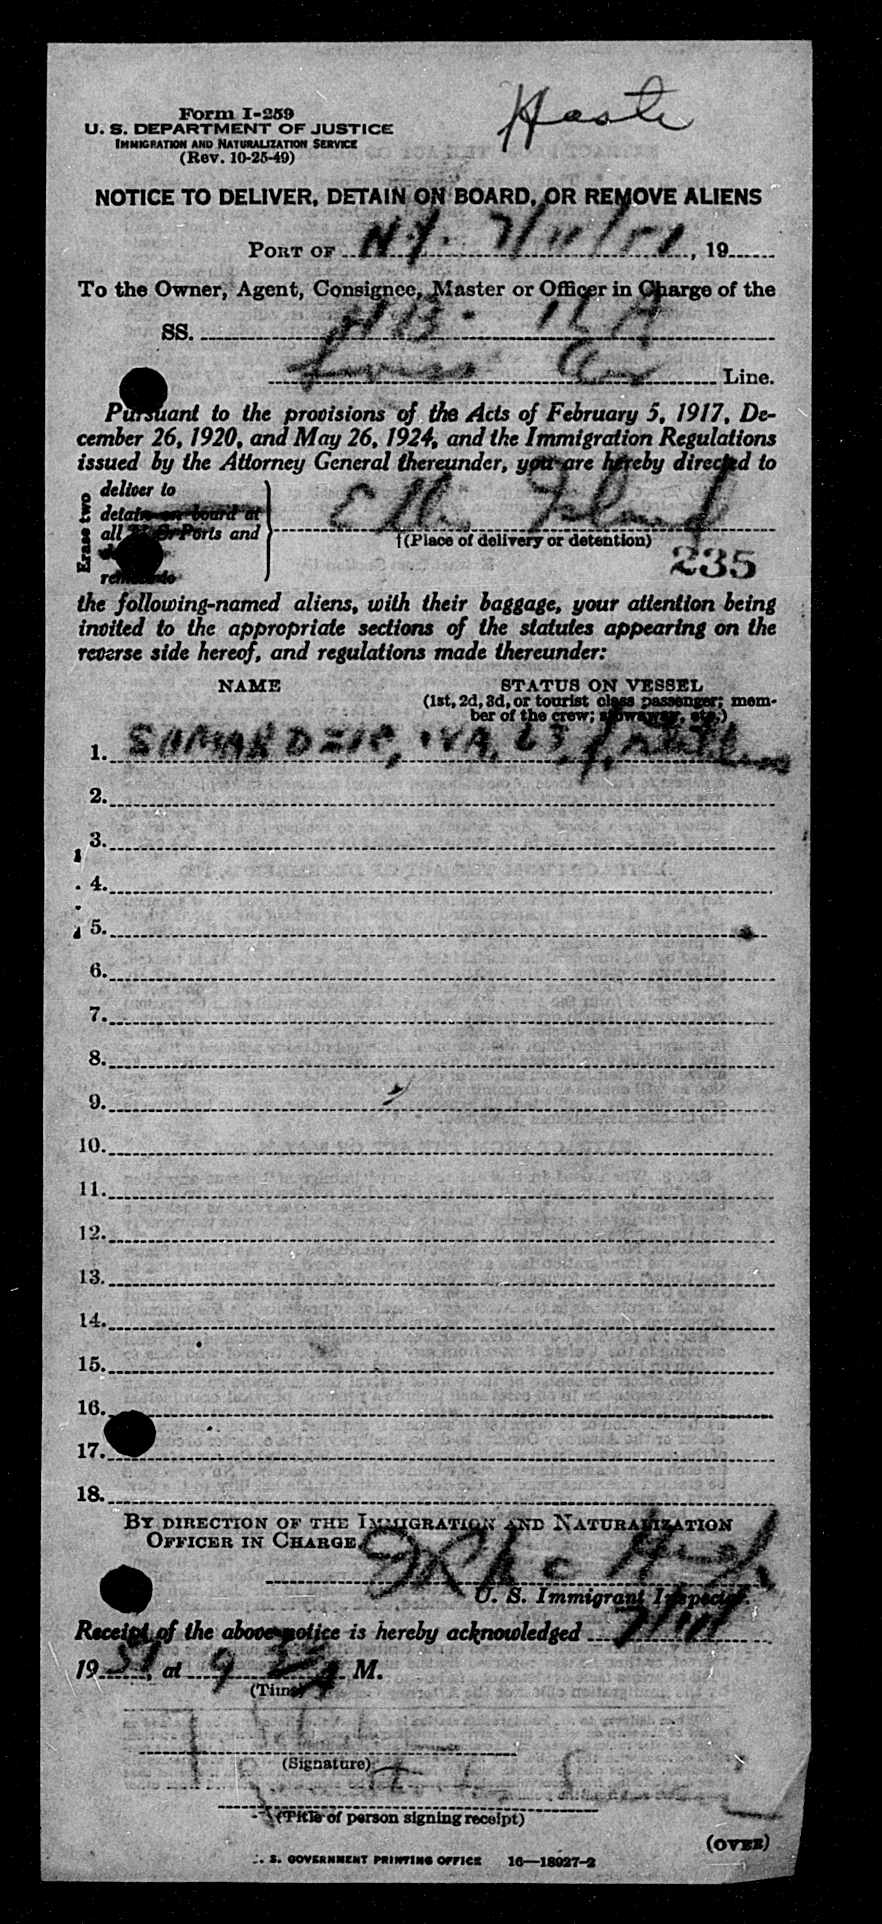 Haste
Form I-259
U. S. DEPARTMENT OF JUSTICE
IMMIGRATION AND NATURALIZATION SERVICE
(Rev. 10-25-49)
NOTICE TO DELIVER, DETAIN ON BOARD, OR REMOVE ALIENS
PORT OF N.Y. 7/11/51, 19
To the Owner, Agent, Consignee, Master or Officer in Charge of the
SS. HB.
Swiss Air Line.
Pursuant to the provisions of the Acts of February 5, 1917, De-
cember 26, 1920, and May 26, 1924, and the Immigration Regulations
issued by the Attorney General thereunder, you are hereby directed to
Erase two
deliver to
detain on board at
all U. S. Ports and
remove to
Ellis Island
†(Place of delivery or detention)
235
the following-named aliens, with their baggage, your attention being
invited to the appropriate sections of the statutes appearing on the
reverse side hereof, and regulations made thereunder:
NAME STATUS ON VESSEL
(1st, 2d, 3d, or tourist class passenger; mem-
ber of the crew; stowaway, etc.)
1. IVA, 63, f,
2.
3.
4.
5.
6.
7.
8.
9.
10.
11.
12.
13.
14.
15.
16.
17.
18.
BY DIRECTION OF THE IMMIGRATION AND NATURALIZATION
OFFICER IN CHARGE
U. S. Immigrant Inspector.
Receipt of the above notice is hereby acknowledged 7/11
19 51, at 9 M.
(Time)
(Signature)
(Title of person signing receipt)
(OVER)
U. S. GOVERNMENT PRINTING OFFICE 16—18027-2